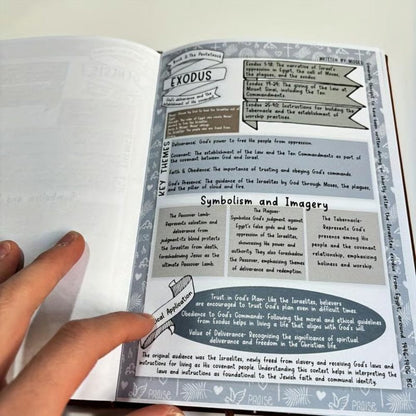 Book 2: The Pentateuch
WRITTEN BY: MOSES
EXODUS
God's deliverance and the
establishment of His covenant.
Exodus 1-18: The narrative of Israel's
oppression in Egypt, the call of Moses,
the plagues, and the exodus.
Exodus 19-24: The giving of the Law at
Mount Sinai, including the Ten
Commandments
Exodus 25-40: Instructions for building the
Tabernacle and the establishment of
worship practices.
KEY THEMES
Deliverance: God's power to free His people from oppression.
Covenant: The establishment of the Law and the Ten Commandments as part of
the covenant between God and Israel.
Faith & Obedience: The importance of trusting and obeying God's commands.
God's Presence: The guidance of the Israelites by God through Moses, the plagues,
and the pillar of cloud and fire.
Symbolism and Imagery
The Passover Lamb-
Represents salvation and
deliverance from
judgment-its blood protects
the Israelites from death,
foreshadowing Jesus as the
ultimate Passover Lamb.
The Plagues-
Symbolize God's judgment against
Egypt's false gods and their
oppression of the Israelites,
showcasing His power and
authority. They also foreshadow
the Passover, emphasizing themes
of deliverance and redemption.
The Tabernacle-
Represents God's
presence among His
people and the covenant
relationship, emphasizing
holiness and worship.
Application
Trust in God's Plan- Like the Israelites, believers
are encouraged to trust God's plan even in difficult times.
Obedience to God's Commands- Following the moral and ethical guidelines
from Exodus helps in living a life that aligns with God's will.
Value of Deliverance- Recognizing the significance of spiritual
deliverance and freedom in the Christian life.
The original audience was the Israelites, newly freed from slavery and receiving God's laws and
instructions for living as His covenant people. Understanding this context helps in interpreting the
laws and instructions as foundational to the Jewish faith and communal identity.
PRAISE
PRAISE
PRAISE